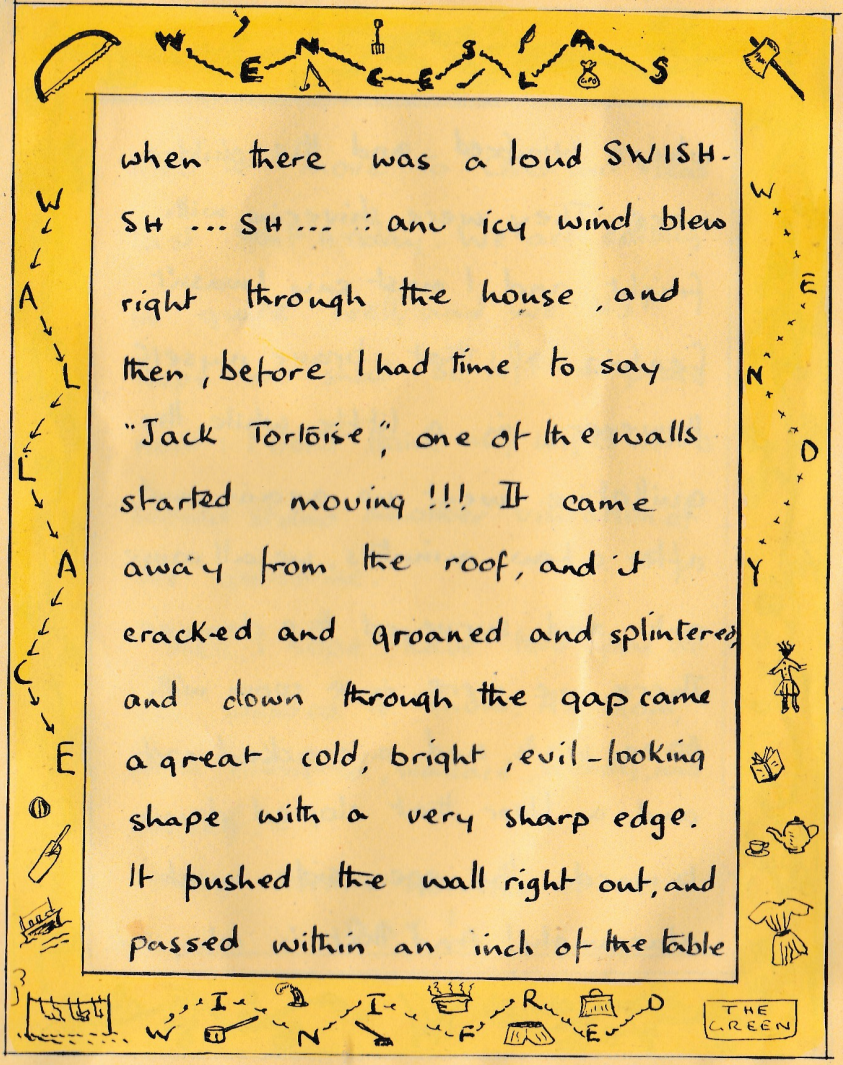 WENCESLAS
WALLACE
WENDY
when there was a loud SWISH-
SH ... SH ... : icy wind blew
right through the house, and
then, before I had time to say
"Jack Tortoise", one of the walls
started moving !!! It came
away from the roof, and it
cracked and groaned and splintered,
and down through the gap came
a great cold, bright, evil-looking
shape with a very sharp edge.
It pushed the wall right out, and
passed within an inch of the table
WINIFRED
THE
GREEN